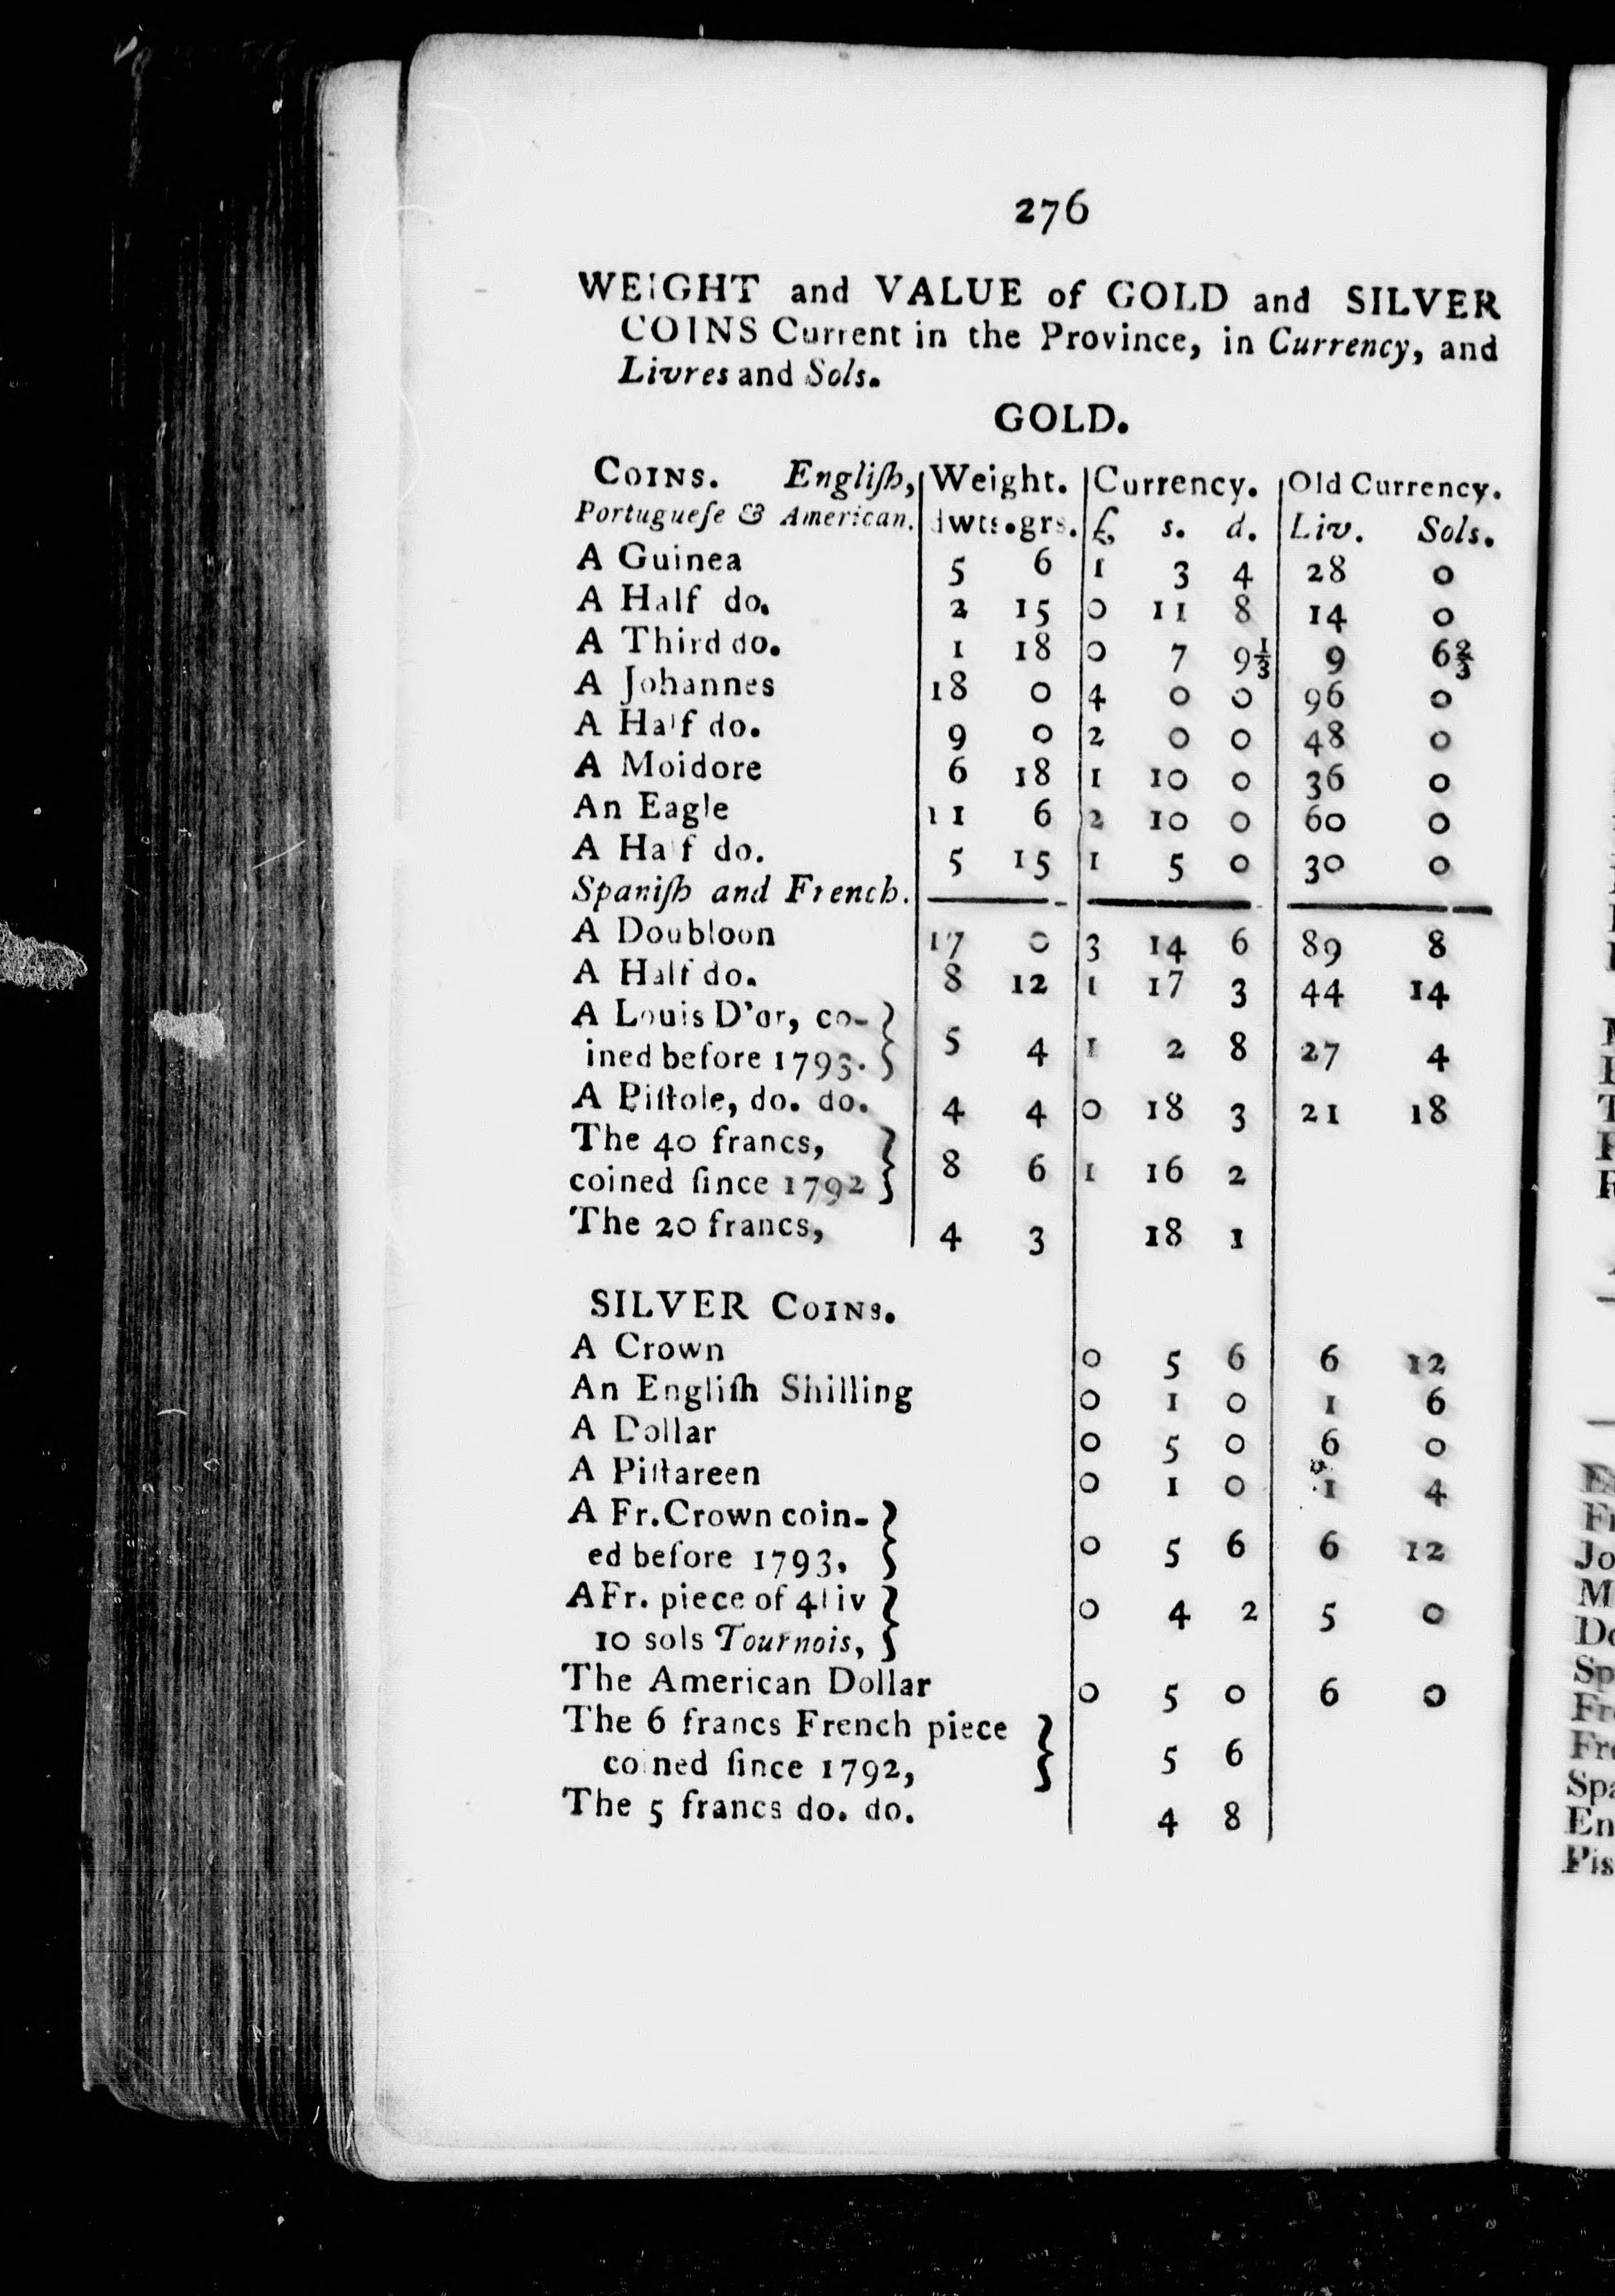 276
WEIGHT and VALUE of GOLD and SILVER
COINS Current in the Province, in Currency, and
Livres and Sols.
GOLD.
COINS. Engliſh, Weight. Currency. Old Currency.
Portugueſe & American. dwts.grs. £ s. d. Liv. Sols.
A Guinea 5 6 1 3 4 28 0
A Half do. 2 15 0 11 8 14 0
A Third do. 1 18 0 7 9⅓ 9 6⅔
A Johannes 18 0 4 0 0 96 0
A Half do. 9 0 2 0 0 48 0
A Moidore 6 18 1 10 0 36 0
An Eagle 11 6 2 10 0 60 0
A Half do. 5 15 1 5 0 30 0
Spaniſh and French.
A Doubloon 17 0 3 14 6 89 8
A Half do. 8 12 1 17 3 44 14
A Louis D'or, co-
ined before 1793. 5 4 1 2 8 27 4
A Piſtole, do. do. 4 4 0 18 3 21 18
The 40 francs,
coined ſince 1792 8 6 1 16 2
The 20 francs, 4 3 18 1
SILVER COINS.
A Crown 0 5 6 6 12
An Engliſh Shilling 0 1 0 1 6
A Dollar 0 5 0 6 0
A Piſtareen 0 1 0 1 4
A Fr. Crown coin-
ed before 1793, 0 5 6 6 12
A Fr. piece of 4liv
10 sols Tournois, 0 4 2 5 0
The American Dollar 0 5 0 6 0
The 6 francs French piece
coined ſince 1792, 5 6
The 5 francs do. do. 4 8
Fr
Jo
M
Do
Sp
Fr
Fre
Spa
En
Pis